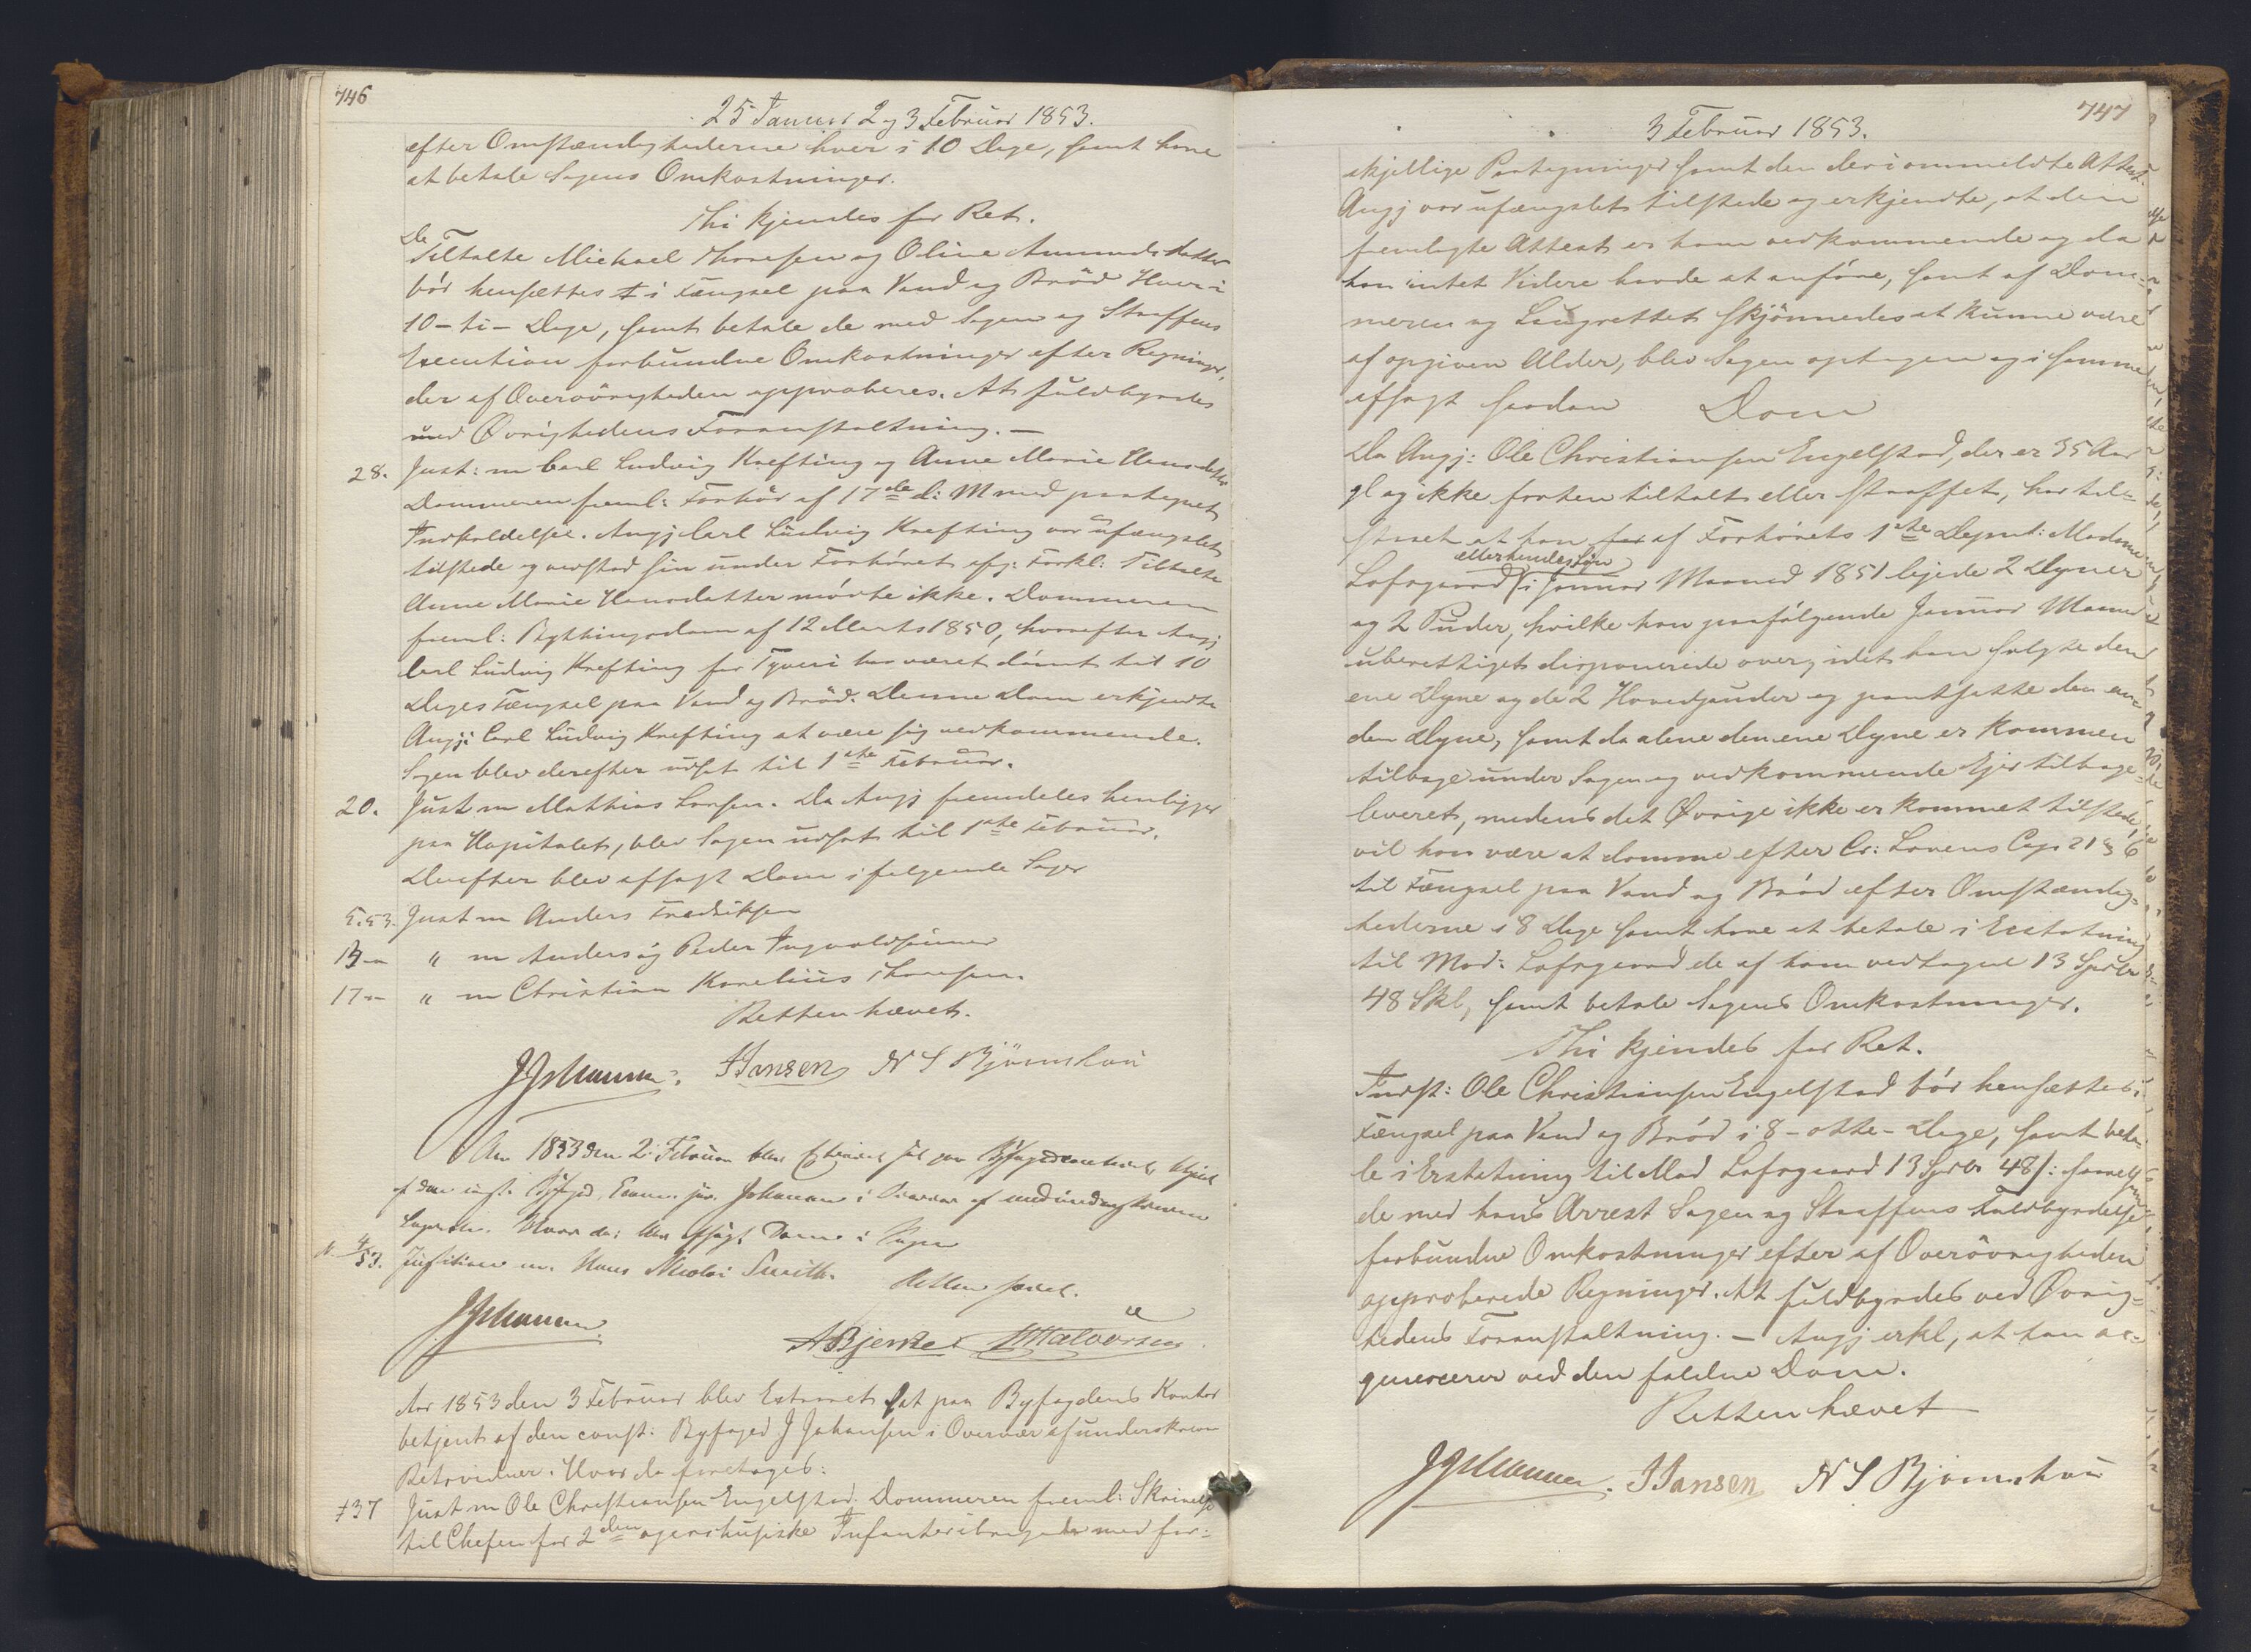 746
25 Januar 2 og 3 Februar 1853.
efter Omstændighederne hver i 10 Dage, samt have
at betale Sagens Omkostninger.
Thi kjendes for Ret.
De
Tiltalte Michael Thoresen og Oline Amundsdatter
bör hensættes i Fængsel paa Vand og Bröd Hver i
10 - ti - Dage, samt betale de med Sagen og Straffens
Execution forbundne Omkostninger efter Regninger,
der af Overövrigheden approberes. At fuldbyrdes
ved Övrighedens Foranstaltning. -
28. Just: m Carl Ludvig Krefting og Anne Marie Hansdatter
Dommeren freml: Forhör af 17de d: M med paategnet
Indkaldelse. Angj Carl Ludvig Krefting var ufængslet
tilstede og vedstod sin under Forhöret afg: Forkl: Tiltalte
Anne Marie Hansdatter mödte ikke. Dommeren
freml: Bythingsdom af 12 Marts 1850, hvorefter Angj
Carl Ludvig Krefting for Tyveri har været dömt til 10
Dages Fængsel paa Vand og Bröd. Denne Dom erkjendte
Angj: Carl Ludvig Krefting at være sig vedkommende.
Sagen blev derefter udsat til 1ste Februar.
20. Just m Mathias Larsen. Da Angj fremdeles henligger
paa Hospitalet, blev Sagen udsat til 1ste Februar.
Derefter blev afsagt Dom i følgende Sager
5.53. Just m Anders Fredriksen
13 - " m Anders og Peder Ingvaldsönner
17 - " m Christian Kornelius Thoresen.
Retten hævet.
JJohansen. J Jansen N S Björnshou
Aar 1853 den 2 Februar blev Extraret sat paa Byfogedcontoret betjent
af den const. Byfoged, Exam. jur. Johansen i Overvær af medunderskrevne
Lagrette. Hvor da: blev afsagt Dom i Sagen
N. 4/53. Justitien m. Hans Nicolai Smith.
Retten hævet.
JJohansen.
A Bjerke HHalvorsen
Aar 1853 den 3 Februar blev Extraret sat paa Byfogdens Kontor
betjent af den const: Byfoged J Johansen i Overvær af underskrevne
Retsvidner. Hvor da foretoges:
+37 Just m Ole Christiansen Engelstad. Dommeren freml: Skrivelse
til Chefen for 2den agershusiske Infanteribrigade med for=
747
3 Februar 1853.
skjellige Paategninger samt den deri ommeldte Attest.
Angj var ufængslet tilstede og erkjendte, at den
fremlagte Attest er ham vedkommende og da
han intet Videre havde at anföre, samt af Dom=
meren og Laugrettet skjönnedes at kunne være
af opgiven Alder, blev Sagen optagen og i samme
afsagt saadan Dom
Da Angj: Ole Christiansen Engelstad, der er 35 Aar
gl og ikke forhen tiltalt eller straffet, har til=
staaet at han af Forhörets 1ste Depont: Madame
eller hendes Sön
Lofsgaard i Januar Maaned 1851 lejede 2 Dyner
og 2 Puder, hvilke han paafölgende Januar Maaned
uberettiget disponerede over, idet han solgte den
ene Dyne og de 2 Hovedpuder og pantsatte den an=
den Dyne, samt da alene den ene Dyne er kommen
tilbage under Sagen og vedkommende Ejer tilbage=
leveret, medens det Övrige ikke er kommet tilstede,
vil han være at domme efter Cr: Lovens Cap 21 § 6
til Fængsel paa Vand og Bröd efter Omstændig=
hederne i 8 Dage samt have at betale i Erstatning
til Mad: Lofsgaard de af ham vedtagne 13 Spdlr
48 Skl, samt betale Sagens Omkostninger.
Thi kjendes for Ret.
Indst: Ole Christiansen Engelstad bör hensættes i
Fængsel paa Vand og Bröd i 8 - otte - Dage, samt beta=
le i Erstatning til Mad Lofsgaard 13 Spdlr 48 s: saavelsom
de med hans Arrest Sagen og Straffens Fuldbyrdelse
forbundne Omkostninger efter af Overövrigheden
approberede Regninger. At fuldbyrdes ved Övrig=
hedens Foranstaltning. - Angj erkl, at han ac=
quiescerer ved den faldne Dom.
Retten hævet
JJohansen. J Jansen N S Bjørnshou